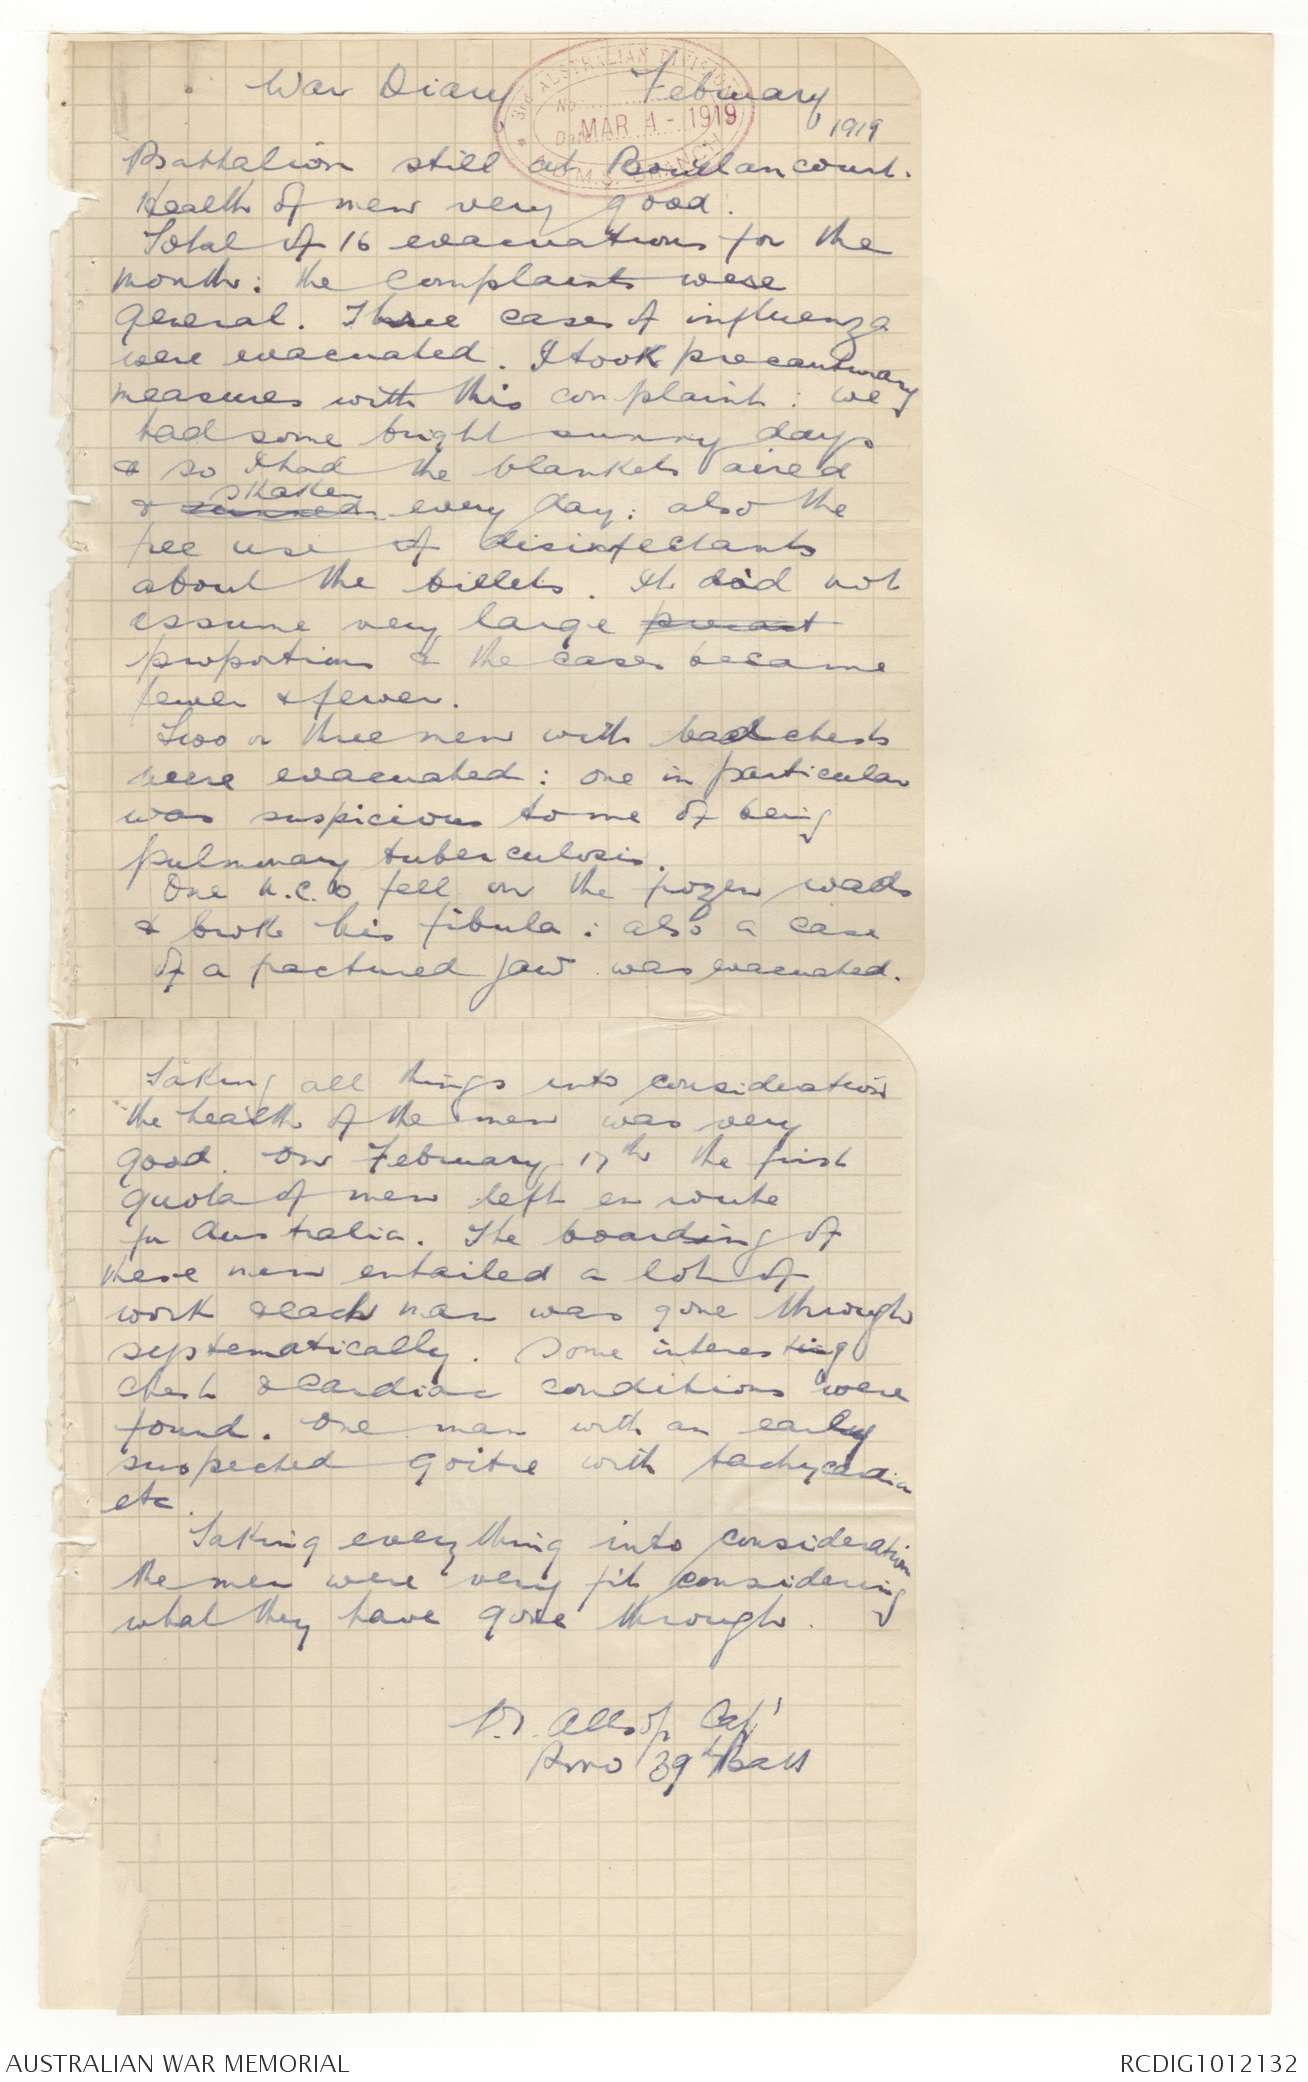 War Diary February
1919
3RD AUSTRALIAN DIVISION
No.
Date MAR 4 - 1919
Battalion still at Bouillancourt.
Health of men very good.
Total of 16 evacuations for the
month: the complaints were
general. Three cases of influenza
were evacuated. I took precautionary
measures with this complaint: we
had some bright sunny days
& so I had the blankets aired
& sunned shaken every day: also the
free use of disinfectants
about the billets. It did not
assume very large
proportions & the cases became
fewer & fewer.
Two or three men with bad chests
were evacuated: one in particular
was suspicious to me of being
pulmonary tuberculosis.
One N.C.O fell on the frozen roads
& broke his fibula: also a case
of a fractured jaw was evacuated.
Taking all things into consideration
the health of the men was very
good. On February 17th the first
quota of men left en route
for Australia. The boarding of
these men entailed a lot of
work & each man was gone through
systematically. Some interesting
chest & cardiac conditions were
found. One man with an early
suspected goitre with tachycardia
etc.
Taking everything into consideration
the men were very fit considering
what they have gone through.
Allsop Capt
RMO 39th Batt
AUSTRALIAN WAR MEMORIAL
RCDIG1012132